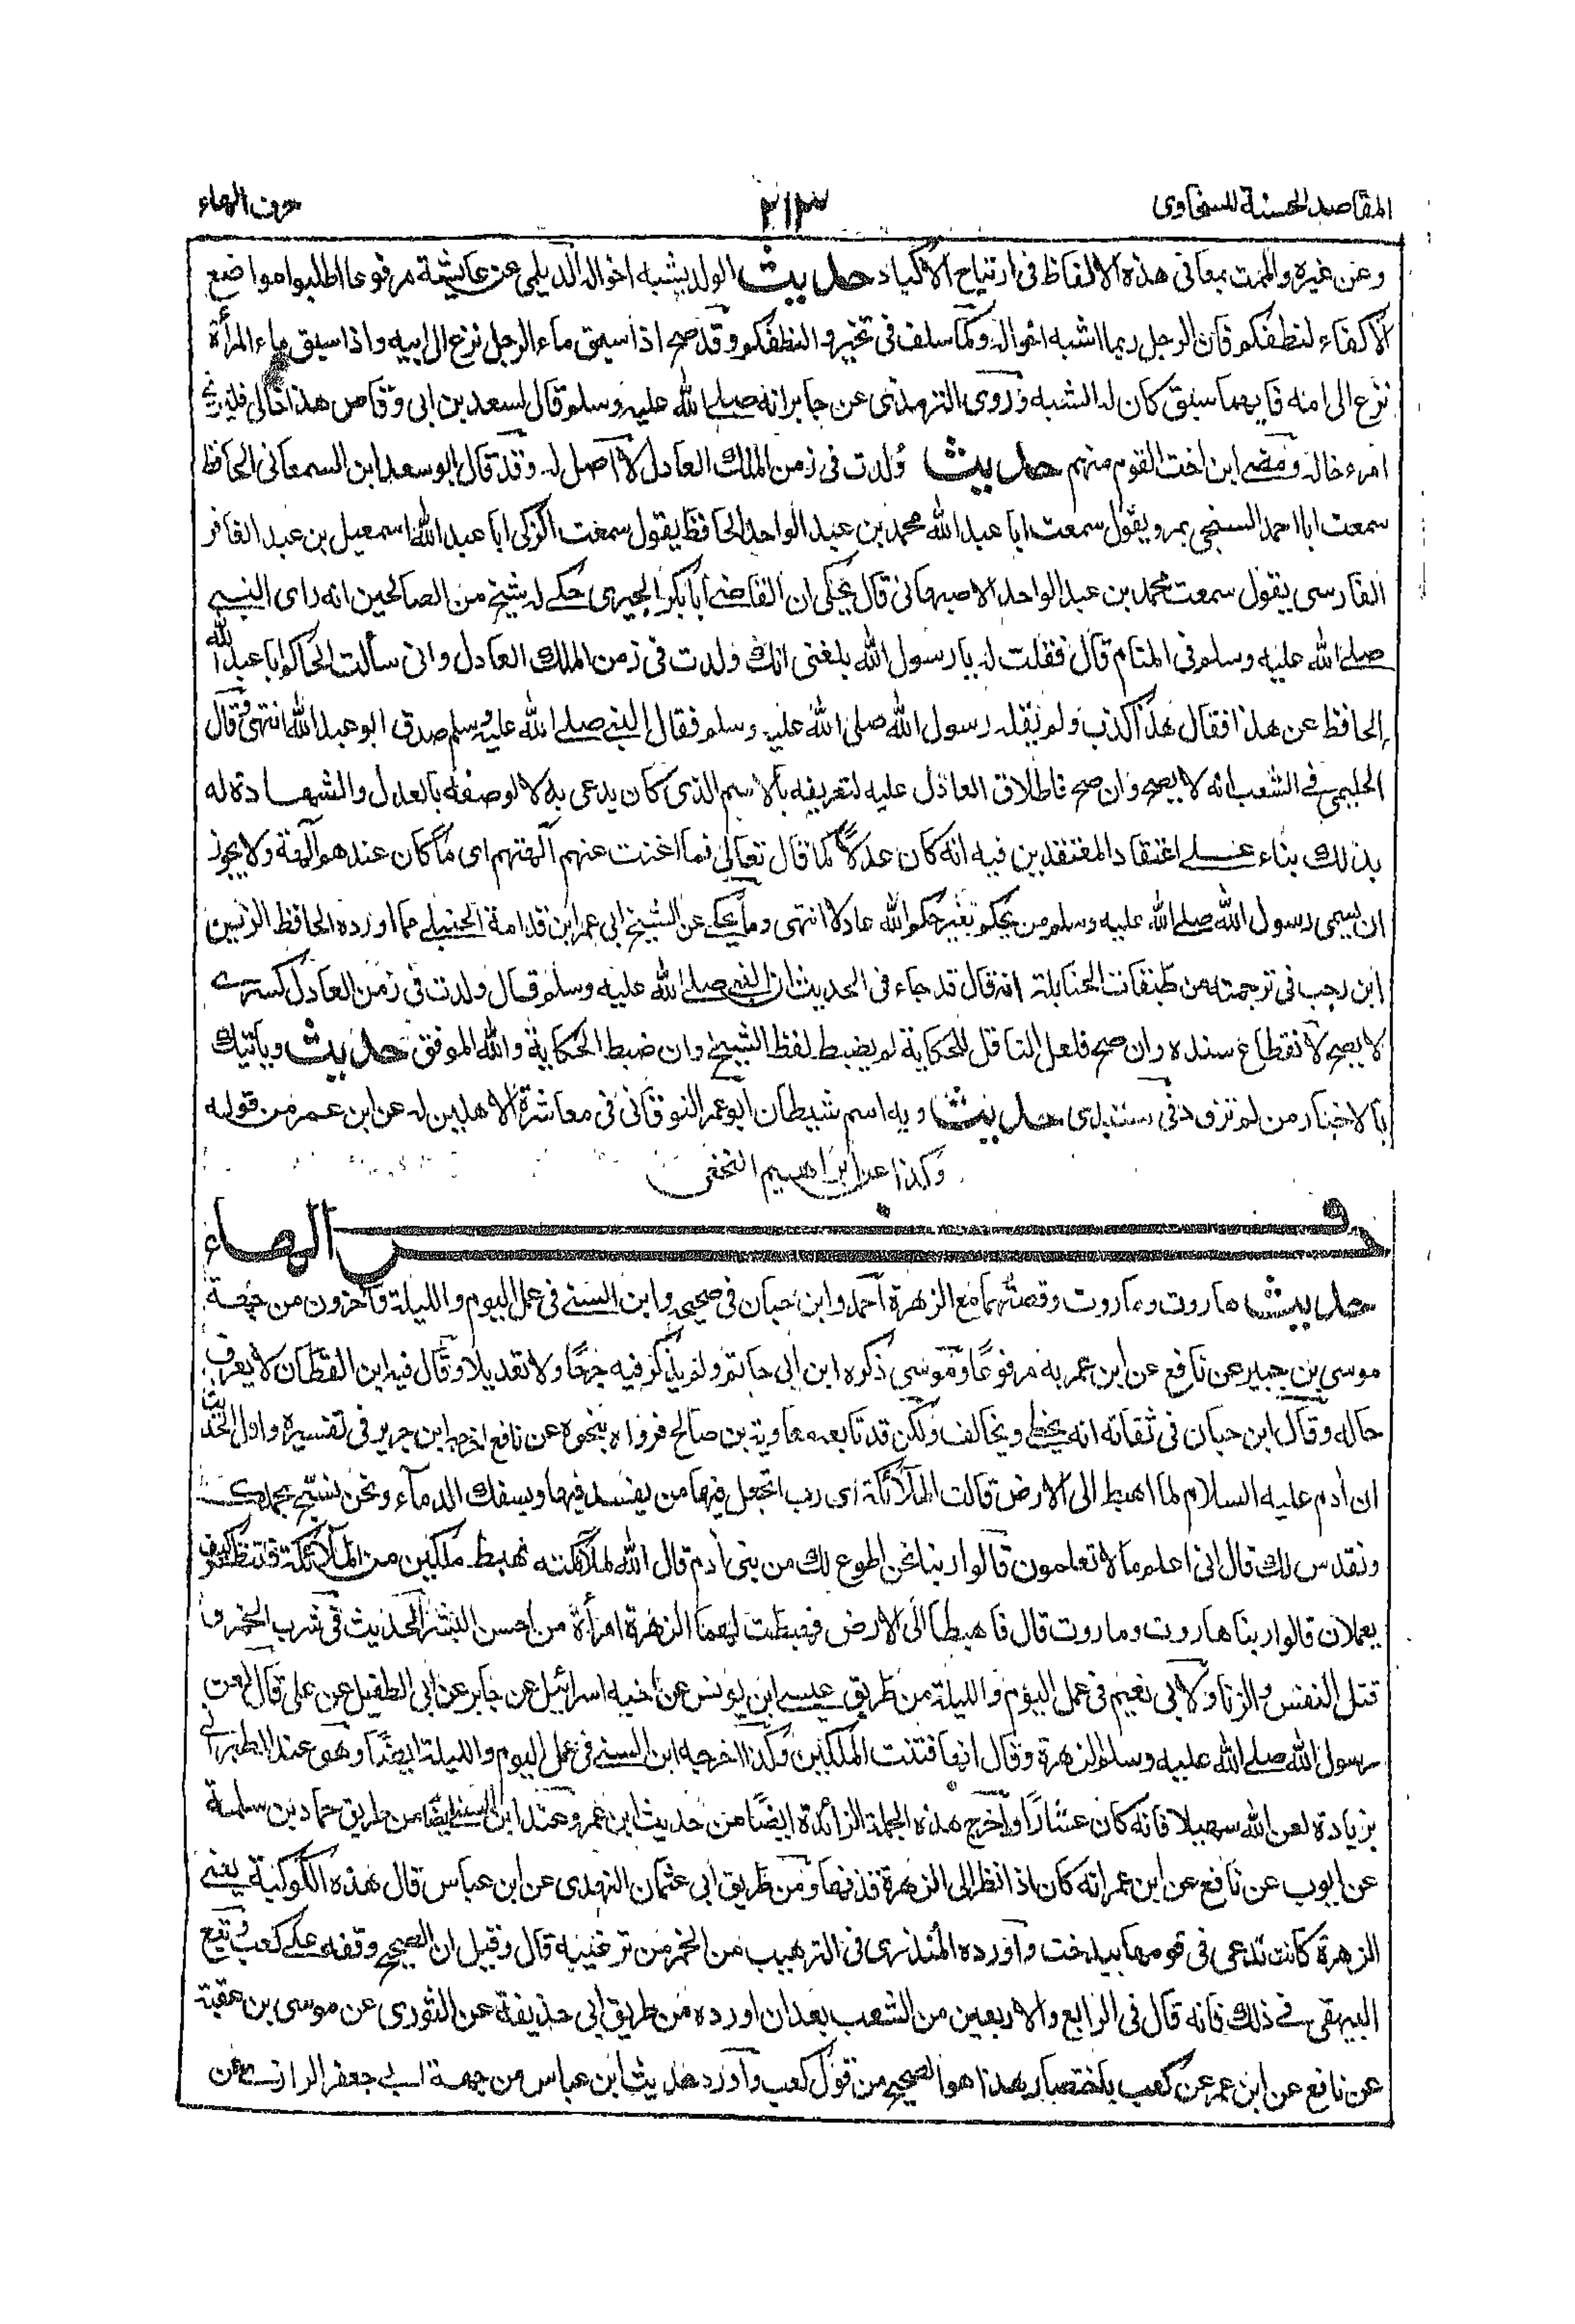 المقاصد الحسنة للسخاوى
٢١٣
حرف الهاء
وعن غيره والممت بمعانى هذه الالفاظ فى ارتياح الاكباد حديث الولد يشبه اخواله الديلمى عن عايشة مرفوعا اطلبوا مواضع
الاكفاء لنطفكم فان الرجل ربما اشبه اخواله وكما سلف فى تخيروا لنطفكم وقد صح اذا سبق ماء الرجل نزع الى ابيه واذا سبق ماء المرأة
نزع الى امه فايهما سبق كان له الشبه وروى الترمذى عن جابر انه صلے الله عليه وسلم قال لسعد بن ابى وقاص هذا خالى فليرنى
امرء خاله ومضے ابن اخت القوم منهم حديث ولدت فى زمن الملك العادل لا اصل له وقد قال ابو سعد ابن السمعانى الحافظ
سمعت ابا احمد السنجى بمرو يقول سمعت ابا عبد الله محمد بن عبد الواحد الحافظ يقول سمعت الزكى ابا عبد الله اسمعيل بن عبد الغافر
الفارسى يقول سمعت محمد بن عبد الواحد الاصبهانى قال يحكى ان القاضے ابا بكر الحيرى حكے له شيخ من الصالحين انه راى النبے
صلے الله عليه وسلم فى المنام قال فقلت له يا رسول الله بلغنى انك ولدت فى زمن الملك العادل وانى سألت الحاكم ابا عبد الله
الحافظ عن هذا فقال هذا كذب ولم يقله رسول الله صلى الله عليه وسلم فقال النبے صلے الله عليه وسلم صدق ابو عبد الله انتهى وقال
الحليمى فے الشعب انه لا يصح وان صح فاطلاق العادل عليه لتعريفه بالاسم الذى كان يدعى به لا لوصفه بالعدل والشهادة له
بذلك بناء علے اعتقاد المعتقدين فيه انه كان عدلا كما قال تعالى فما اغنت عنهم آلهتهم اى ما كان عندهم آلهة ولا يجوز
ان يسمى رسول الله صلے الله عليه وسلم من يحكم بغير حكم الله عادلا انتهى وما يحكے عن الشيخ ابى عمر ابن قدامة الحنبلے مما اورده الحافظ الزين
ابن رجب فى ترجمته من طبقات الحنابلة انه قال قد جاء فى الحديث ان النبے صلے الله عليه وسلم قال ولدت فى زمن العادل كسرے
لا يصح لانقطاع سنده وان صح فلعل الناقل للحكاية لم يضبط لفظ الشيخ وان ضبط الحكاية والله الموفق حديث وياتيك
بالاخبار من لم تزود فى ستبدى حديث ويه اسم شيطان ابو عمر النوقانى فى معاشرة الاهلين له عن ابن عمر من قوله
وكذا عن ابراهيم النخعى
حرف الهاء
حديث هاروت وماروت وقصتهما مع الزهرة احمد وابن حبان فى صحيحه وابن السنے فى عمل اليوم والليلة وآخرون من جهة
موسى بن جبير عن نافع عن ابن عمر به مرفوعًا وموسى ذكره ابن ابى حاتم ولم يذكر فيه جرحًا ولا تعديلا وقال فيه ابن القطان لا يعرف
حاله وقال ابن حبان فى ثقاته انه يخطے ويخالف ولكن قد تابعه معاوية بن صالح فرواه بنحوه عن نافع اخرجه ابن جرير فى تفسيره واول الحديث
ان أدم عليه السلام لما اهبط الى الارض قالت الملآئكة اى رب اتجعل فيها من يفسد فيها ويسفك الدمآء ونحن نسبّح بحمدك
ونقدس لك قال انى اعلم ما لا تعلمون قالوا ربنا نحن اطوع لك من بنى أدم قال الله لملائكته نهبط ملكين من الملآئكة فننظر كيف
يعملان قالوا ربنا هاروت وماروت قال فاهبطا الى الارض فهبطت لهما الزهرة امرأة من احسن البشر الحديث فى شرب الخمر و
قتل النفس والزنا ولابى نعيم فى عمل اليوم والليلة من طريق عيسے ابن يونس عن اخيه اسرائيل عن جابر عن ابى الطفيل عن على قال لعن
رسول الله صلے الله عليه وسلم الزهرة وقال انها فتنت الملكين وكذا اخرجه ابن السنے فى عمل اليوم والليلة ايضًا وهى عند الطبرانى
بزيادة لعن الله سهيلا فانه كان عشارًا واخرج هذه الجملة الزائدة ايضًا من حديث ابن عمر وعند ابن السنے ايضًا من طريق حماد بن سلمة
عن ايوب عن نافع عن ابن عمر انه كان اذا نظر الى الزهرة قذفها ومن طريق ابى عثمان النهدى عن ابن عباس قال هذه الكوكبة يعنے
الزهرة كانت تدعى فى قومها بيدخت واورده المنذرى فى الترهيب من الخمر من ترغيبه قال وقيل ان الصحيح وقفه علے كعب وتبع
البيهقى فے ذلك فانه قال فى الرابع والاربعين من الشعب بعد ان اورده من طريق ابى حذيفة عن الثورى عن موسى بن عقبة
عن نافع عن ابن عمر عن كعب باختصار هذا هو الصحيح من قول كعب واورد حديث ابن عباس من جهة ابے جعفر الرازے عن